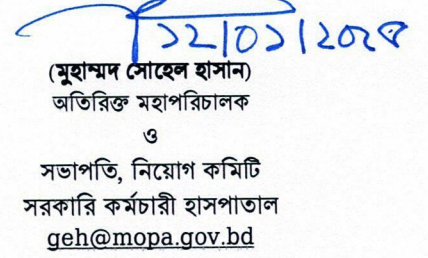 ১২/০১/২০২৫
(মুহাম্মদ সোহেল হাসান)
অতিরিক্ত মহাপরিচালক
ও
সভাপতি, নিয়োগ কমিটি
সরকারি কর্মচারী হাসপাতাল
geh@mopa.gov.bd